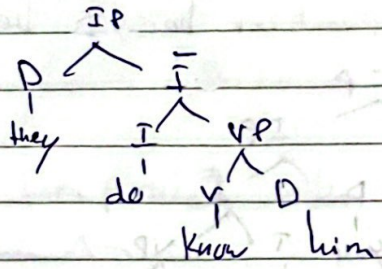 IP
D Ī
they I VP
do V D
know him